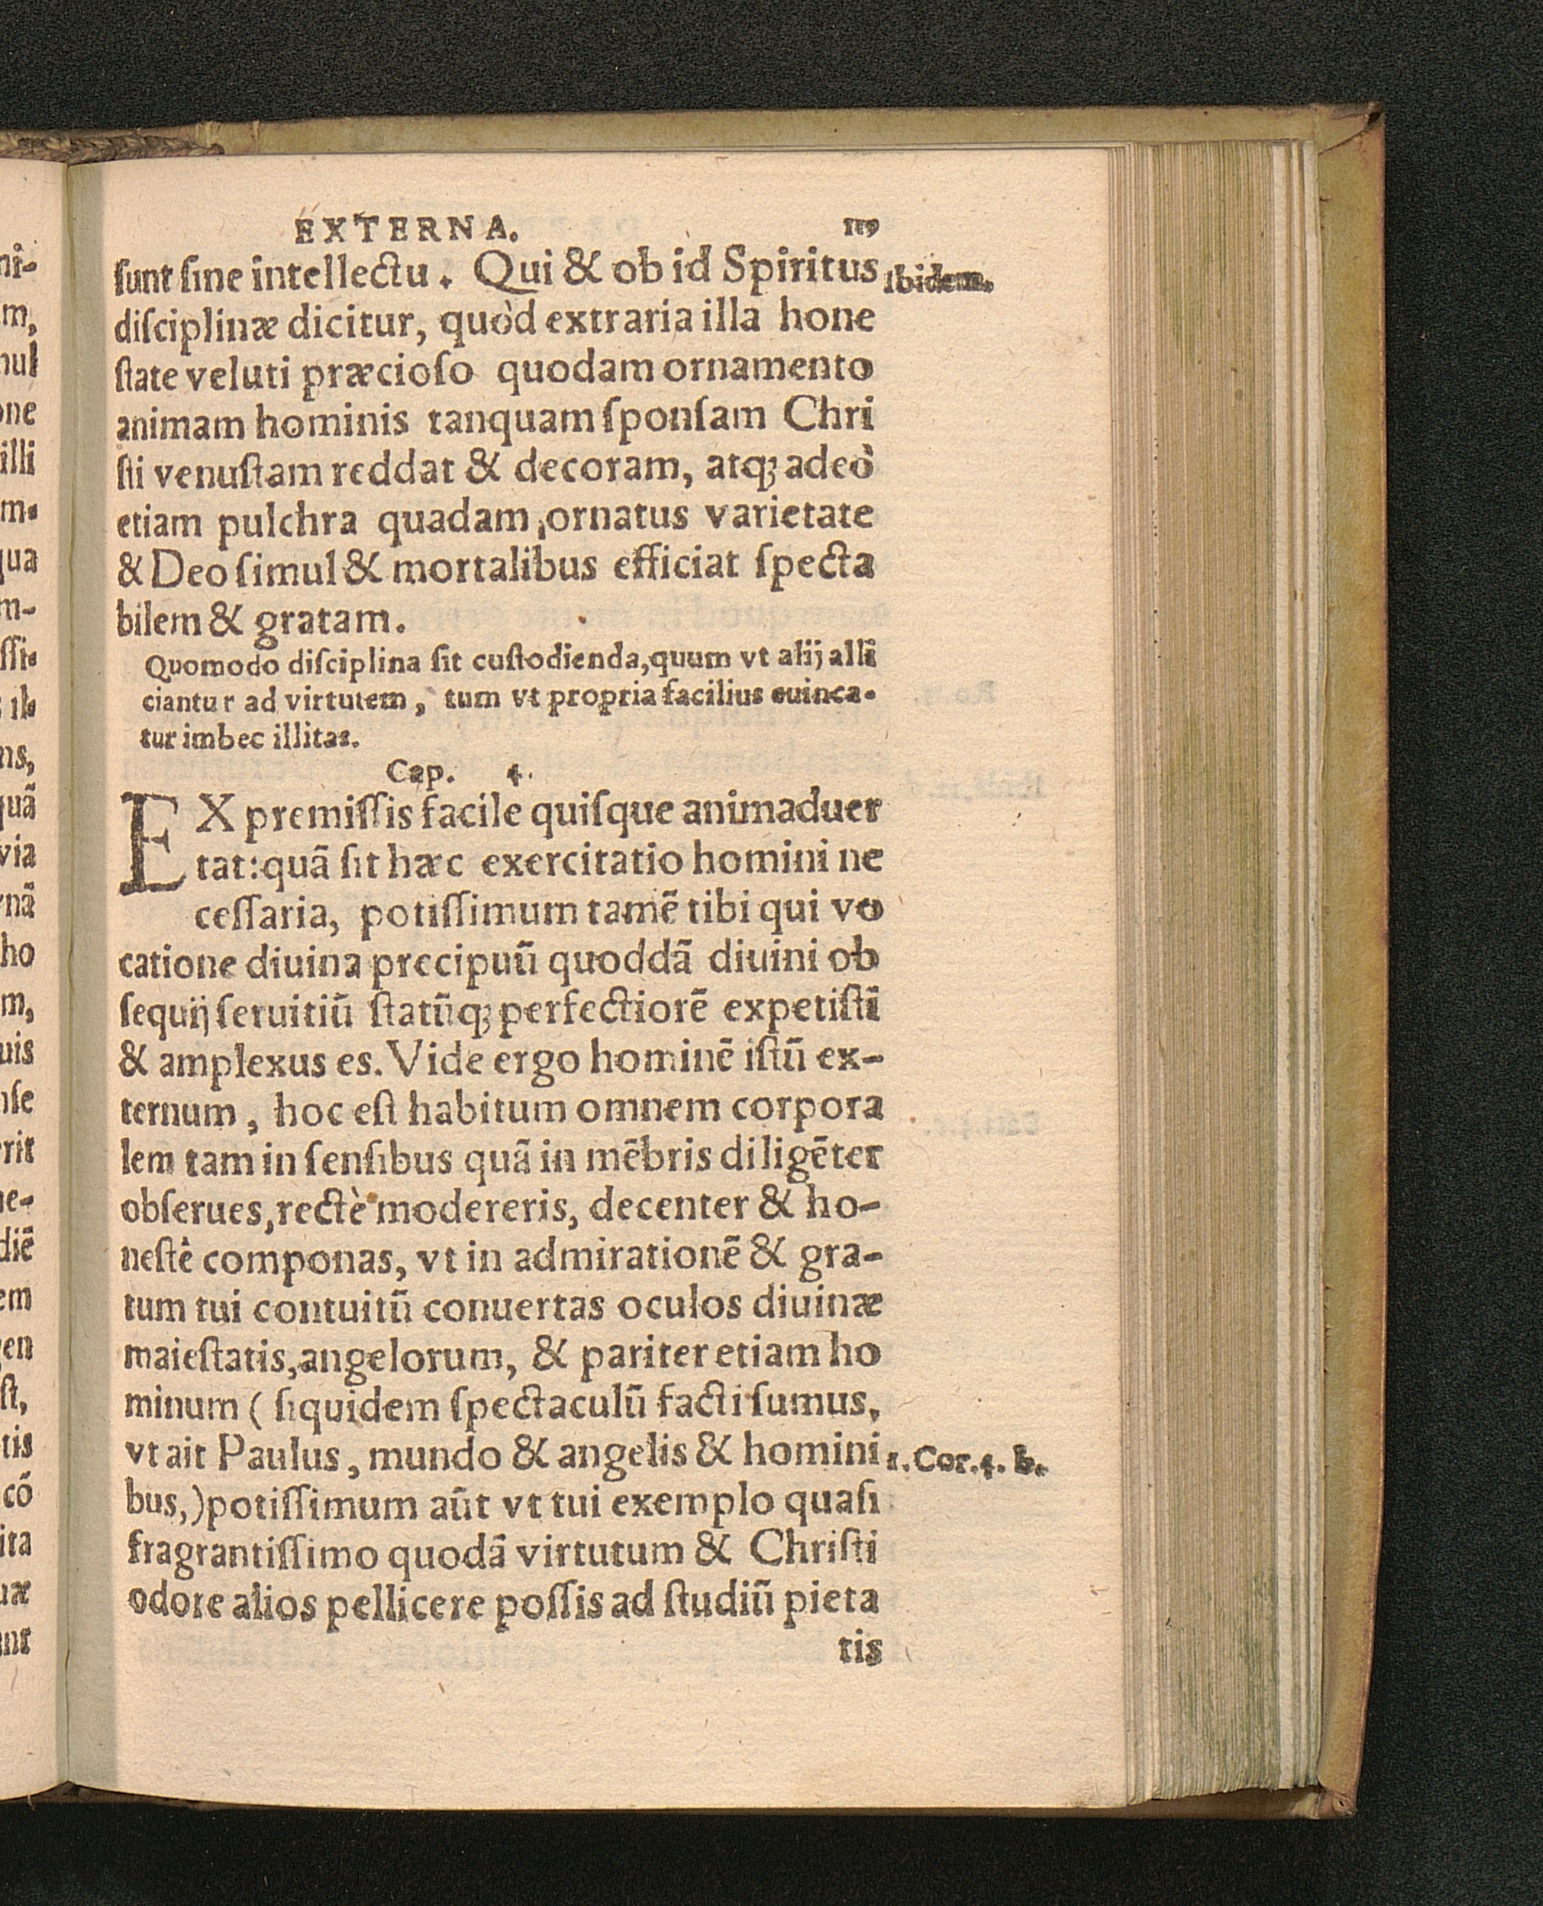 EXTERNA. 119
ſunt ſine intellectu. Qui & ob id Spiritus
Ibidem.
diſciplinæ dicitur, quòd extraria illa hone
ſtate veluti præcioſo quodam ornamento
animam hominis tanquam ſponſam Chri
ſti venuſtam reddat & decoram, atqꝫ adeò
etiam pulchra quadam ornatus varietate
& Deo ſimul & mortalibus efficiat ſpecta
bilem & gratam.
Quomodo diſciplina ſit cuſtodienda, quum vt alij allĩ
ciantur ad virtutem, tum vt propria facilius euinca-
tur imbecillitas.
Cap. 4.
EX premiſſis facile quiſque animaduer
tat: quã ſit hæc exercitatio homini ne
ceſſaria, potiſſimum tamẽ tibi qui vo
catione diuina precipuũ quoddã diuini ob
ſequij ſeruitiũ ſtatũqꝫ perfectiorẽ expetiſti
& amplexus es. Vide ergo hominẽ iſtũ ex-
ternum, hoc eſt habitum omnem corpora
lem tam in ſenſibus quã in mẽbris diligẽter
obſerues, rectè modereris, decenter & ho-
neſtè componas, vt in admirationẽ & gra-
tum tui contuitũ conuertas oculos diuinæ
maieſtatis, angelorum, & pariter etiam ho
minum ( ſiquidem ſpectaculũ facti ſumus,
vt ait Paulus, mundo & angelis & homini
1. Cor. 4. b.
bus,) potiſſimum aũt vt tui exemplo quaſi
fragrantiſſimo quodã virtutum & Chriſti
odore alios pellicere poſſis ad ſtudiũ pieta
tis